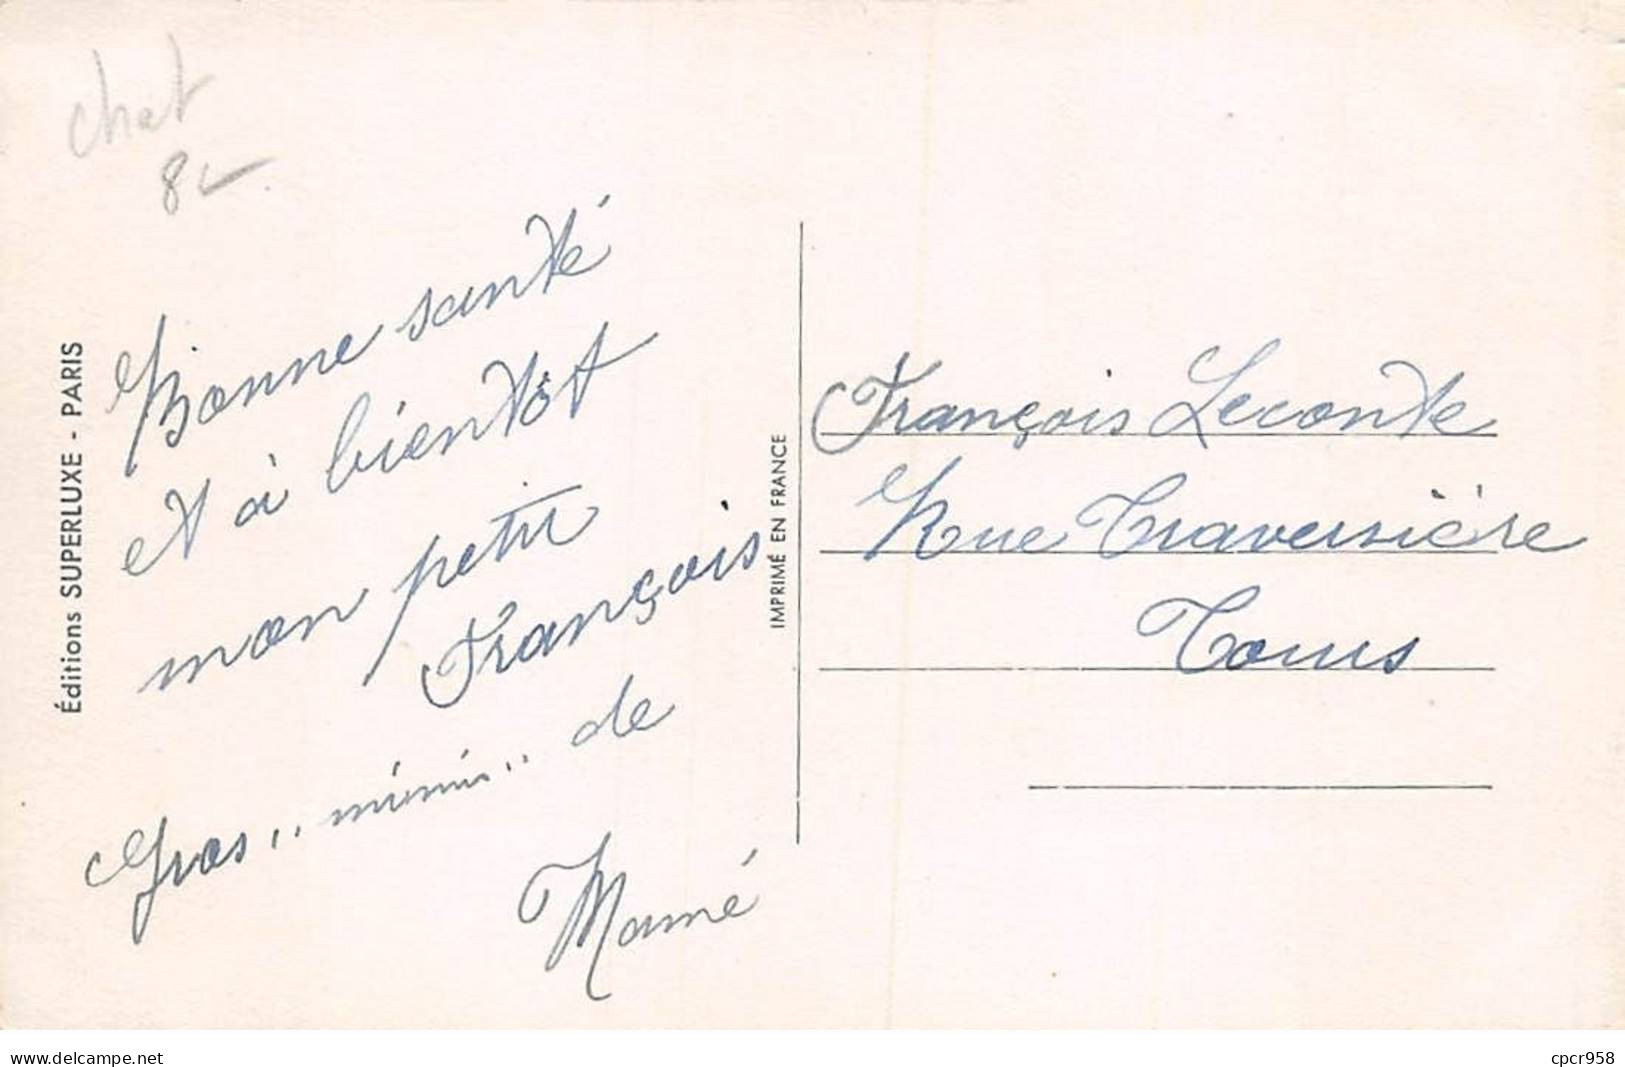 chat
8
Bonne santé
et à bientôt
mon petit
François
Gros ,, mimi ,, de
Mamé
Éditions SUPERLUXE - PARIS
IMPRIMÉ EN FRANCE
François Leconte
Rue Traversière
Tours
www.delcampe.net
cpcr958